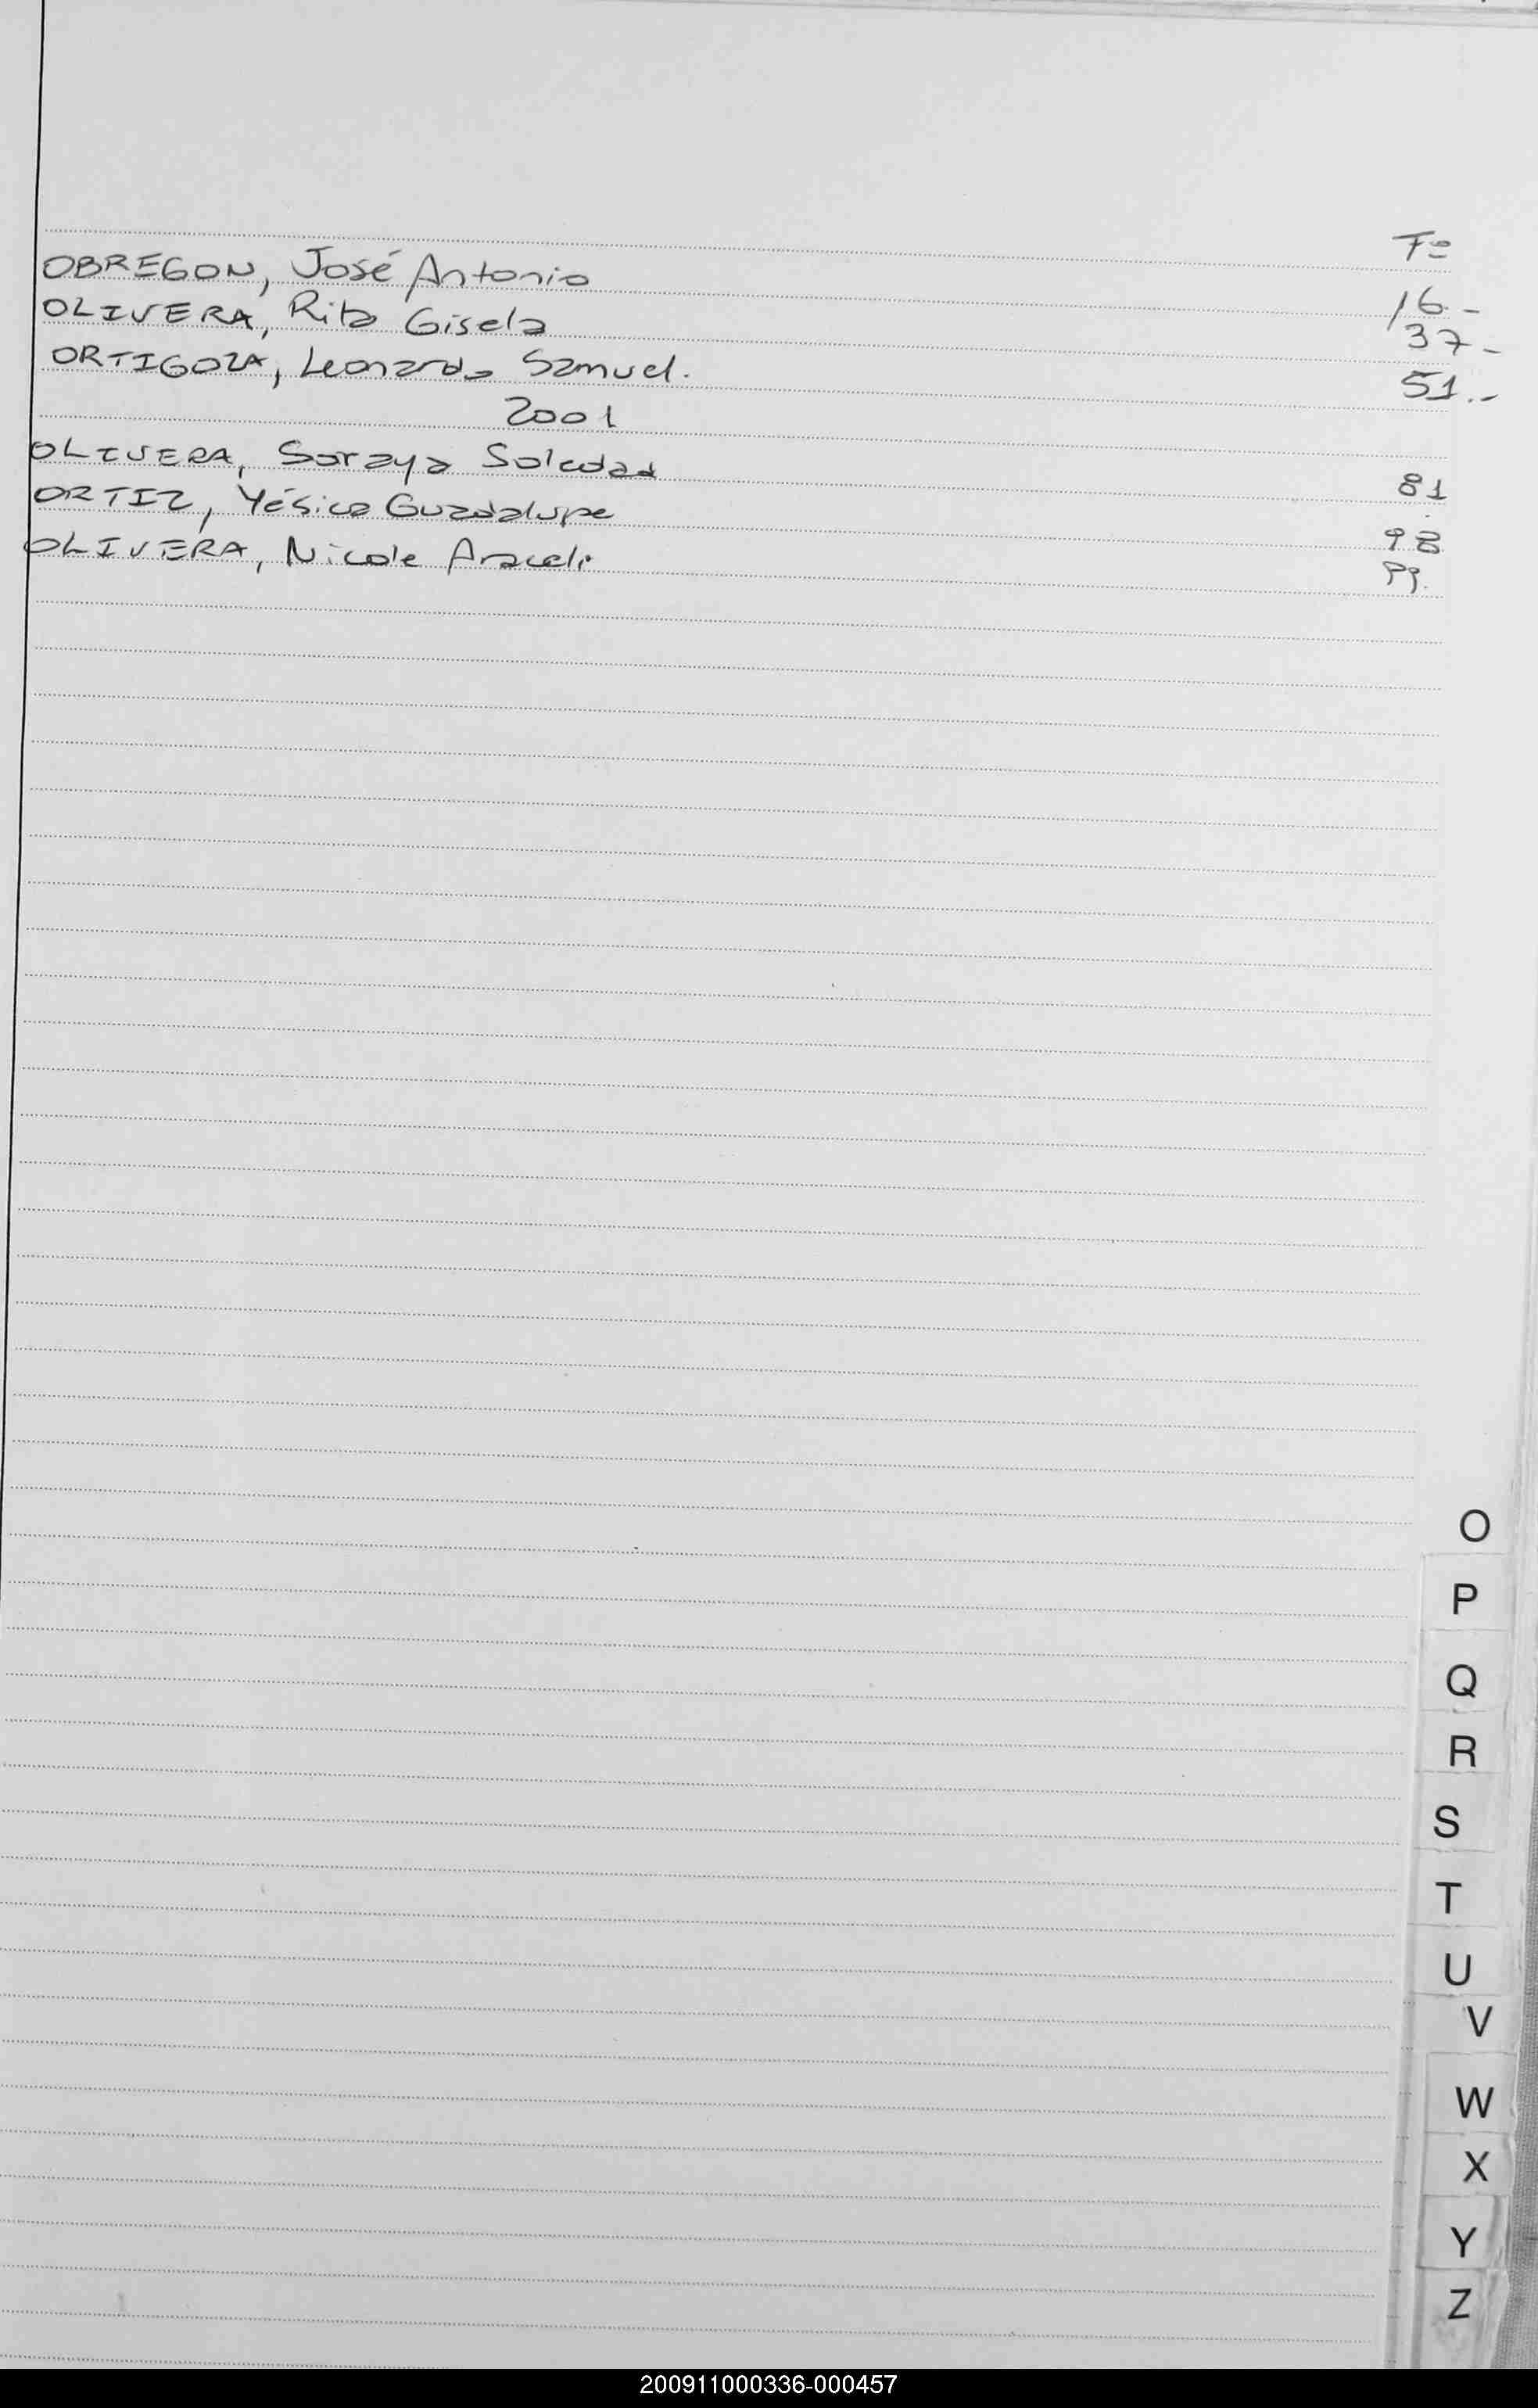 Fº
OBREGON, José Antonio 16.-
OLIVERA, Rita Gisela 37-
ORTIGOZA, Leonardo Samuel. 51.-
2001
OLIVERA, Soraya Soledad 81
ORTIZ, Yésica Guadalupe 98
OLIVERA, Nicole Araceli
O
P
Q
R
S
T
U
V
W
X
Y
Z
200911000336-000457